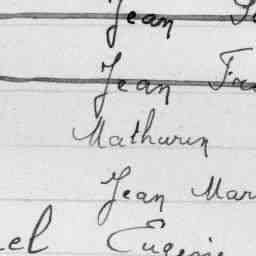 Jean
Jean
Mathurin
Jean Mar
el Eugenie